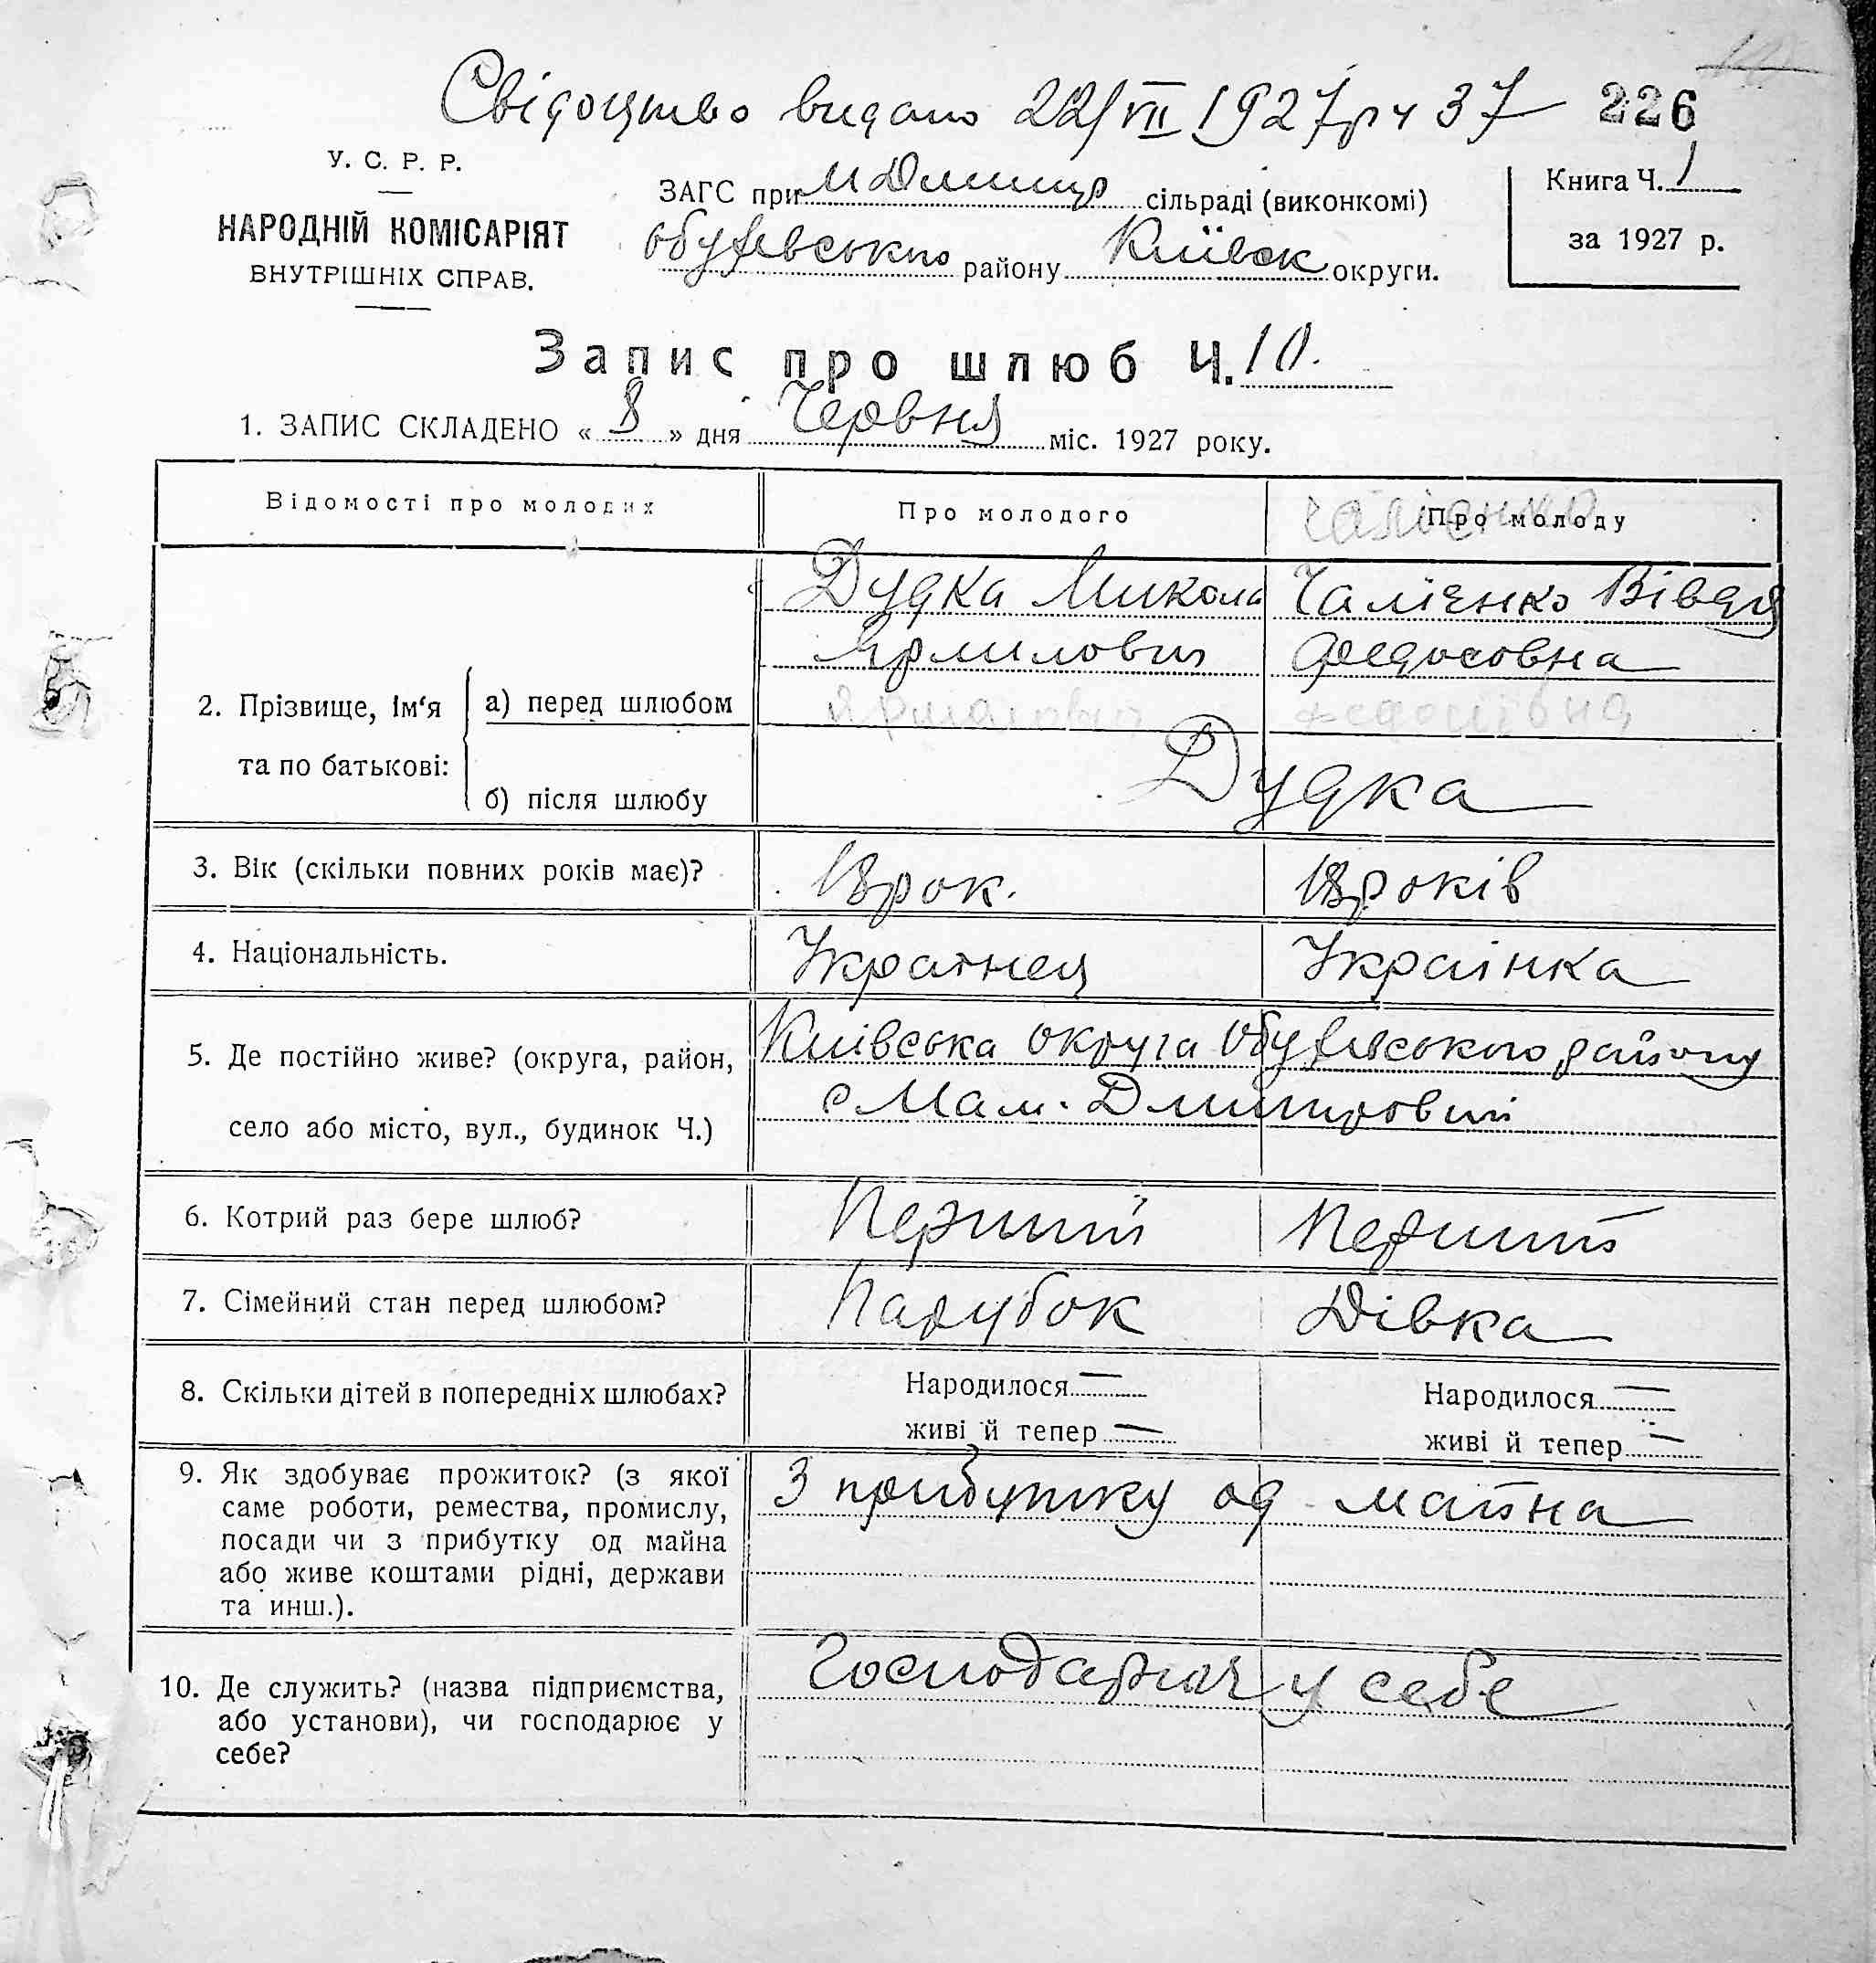 Свідоцтво видано 22/VII 1927 р ч 37
226
У. С. Р. Р.
НАРОДНІЙ КОМІСАРІЯТ
ВНУТРІШНІХ СПРАВ.
ЗАГС при сільраді (виконкомі)
Обухівсько району Київськ округи.
Книга Ч. 1
за 1927 р.
Запис про шлюб Ч. 10.
1. ЗАПИС СКЛАДЕНО « 8 » дня Червня міс. 1927 року.
Відомості про молодих
Про молодого
Про молоду
Чалієнко
2. Прізвище, Ім'я та по батькові:
а) перед шлюбом
Дудка Микола
Ярмилович
Чалієнко Вівдя
Федосовна
Федосіївна
б) після шлюбу
Дудка
3. Вік (скільки повних років має)?
рок.
років
4. Національність.
Украінец
Українка
5. Де постійно живе? (округа, район,
село або місто, вул., будинок Ч.)
Київська округа Обухівського району
с Мал. Дмитровий
6. Котрий раз бере шлюб?
Перший
Перший
7. Сімейний стан перед шлюбом?
Парубок
Дівка
8. Скільки дітей в попередніх шлюбах?
Народилося —
живі й тепер —
Народилося —
живі й тепер —
9. Як здобуває прожиток? (з якої
саме роботи, ремества, промислу,
посади чи з прибутку од майна
або живе коштами рідні, держави
та инш.).
З прибутку од майна
10. Де служить? (назва підприємства,
або установи), чи господарює у
себе?
у себе